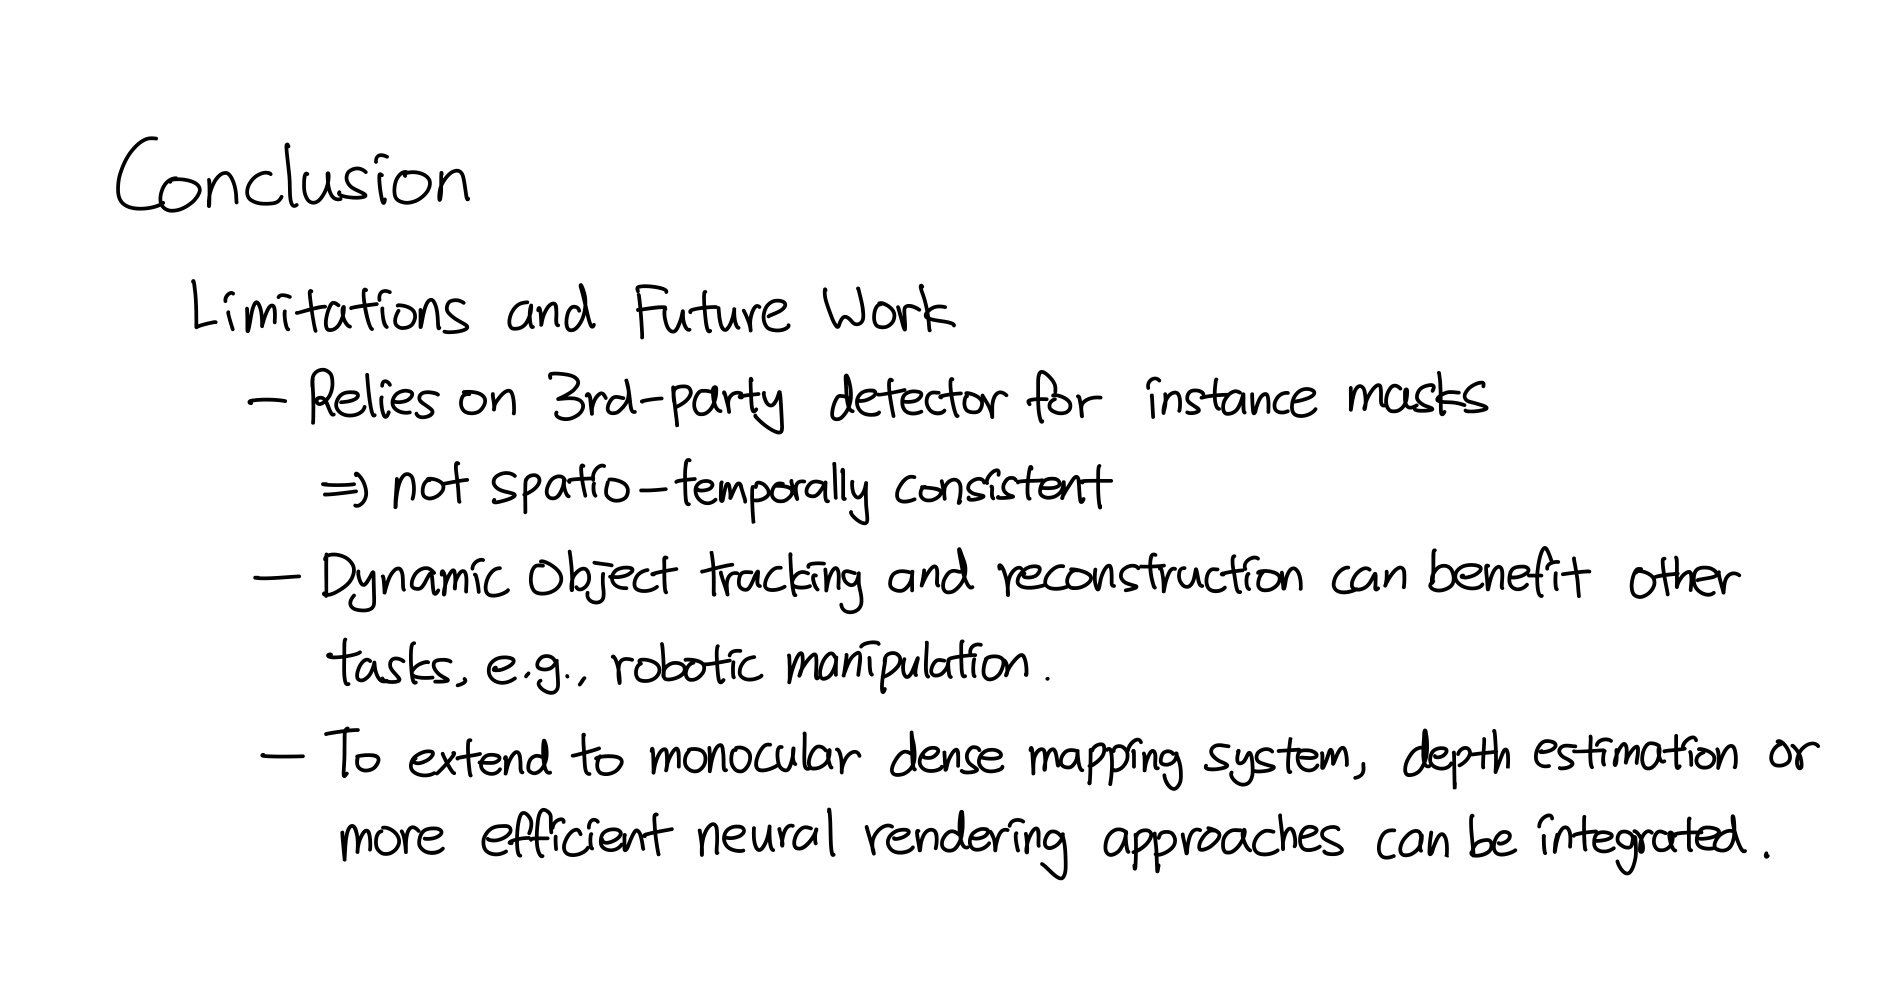 Conclusion
Limitations and Future Work
— Relies on 3rd-party detector for instance masks
⇒ not spatio-temporally consistent
— Dynamic object tracking and reconstruction can benefit other
tasks, e.g., robotic manipulation.
— To extend to monocular dense mapping system, depth estimation or
more efficient neural rendering approaches can be integrated.